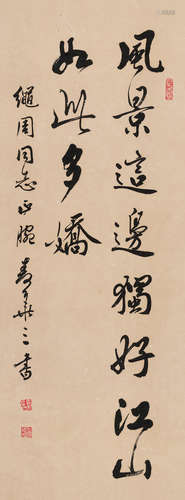 風景這邊獨好江山
如此多嬌
繩周同志正腕